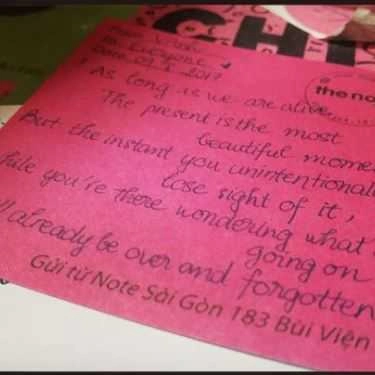 EVERYONE
Date: 09
2017
As long as we are alive
The present is the most
beautiful mome
But the instant you unintentionall
lose sight of it,
hile you're there wondering what
going on
ll already be over and forgotten
Gửi từ Note Sài Gòn 183 Bùi Viện
the no